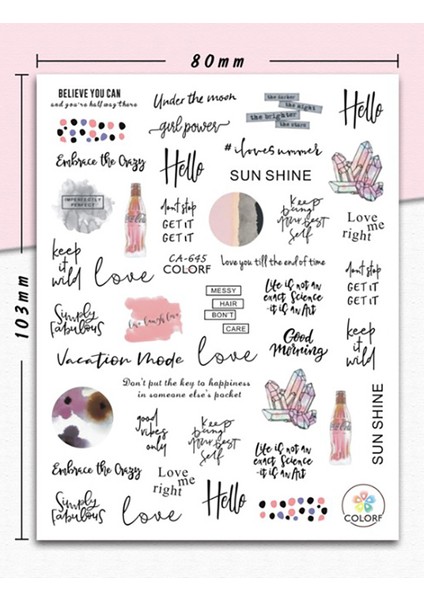 80mm
103mm
BELIEVE YOU CAN
and you're half way there
Under the moon
the darker
the night
the brighter
the stars
Hello
girl power
Embrace the Crazy
Hello
#ilovesummer
SUN SHINE
IMPERFECTLY
PERFECT
don't stop
GET IT
GET IT
Keep
being
your best
self
Love
me
right
keep
it
wild
love
CA-645
COLORF
Love you till the end of time
don't stop
GET IT
GET IT
Simply
Fabulous
Live Laugh Love
MESSY
HAIR
DON'T
CARE
Life is not an
exact Science
-it is an Art
Good
Morning
keep
it
wild
Vacation Mode
love
Don't put the key to happiness
in someone else's pocket
good
vibes
only
Keep
being
your best
self
SUN SHINE
Life is not an
exact Science
-it is an Art
Embrace the Crazy
Love
me
right
Simply
Fabulous
love
Hello
COLORF